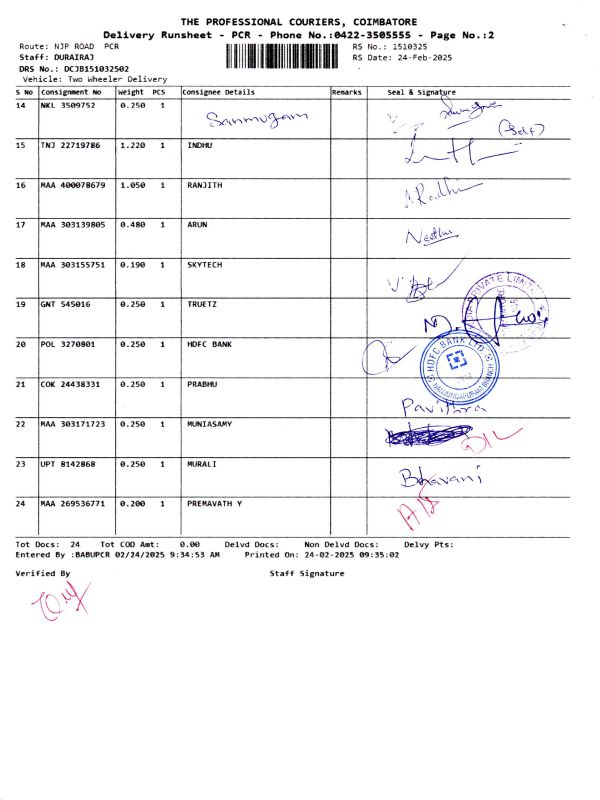 THE PROFESSIONAL COURIERS, COIMBATORE
Delivery Runsheet - PCR - Phone No.:0422-3505555 - Page No.:2
Route: NJP ROAD PCR RS No.: 1510325
Staff: DURAIRAJ RS Date: 24-Feb-2025
DRS No.: DCJB151032502
Vehicle: Two Wheeler Delivery
S No Consignment No Weight PCS Consignee Details Remarks Seal & Signature
14 NKL 3509752 0.250 1 Sanmugam
(Self)
15 TNJ 22719786 1.220 1 INDHU
16 MAA 400078679 1.050 1 RANJITH A Radhi
17 MAA 303139805 0.480 1 ARUN Neethu
18 MAA 303155751 0.190 1 SKYTECH
19 GNT 545016 0.250 1 TRUETZ
20 POL 3270801 0.250 1 HDFC BANK HDFC BANK LTD
21 COK 24438331 0.250 1 PRABHU Pavithra
22 MAA 303171723 0.250 1 MUNIASAMY
23 UPT 8142868 0.250 1 MURALI Bhavani
24 MAA 269536771 0.200 1 PREMAVATH Y
Tot Docs: 24 Tot COD Amt: 0.00 Delvd Docs: Non Delvd Docs: Delvy Pts:
Entered By :BABUPCR 02/24/2025 9:34:53 AM Printed On: 24-02-2025 09:35:02
Verified By Staff Signature